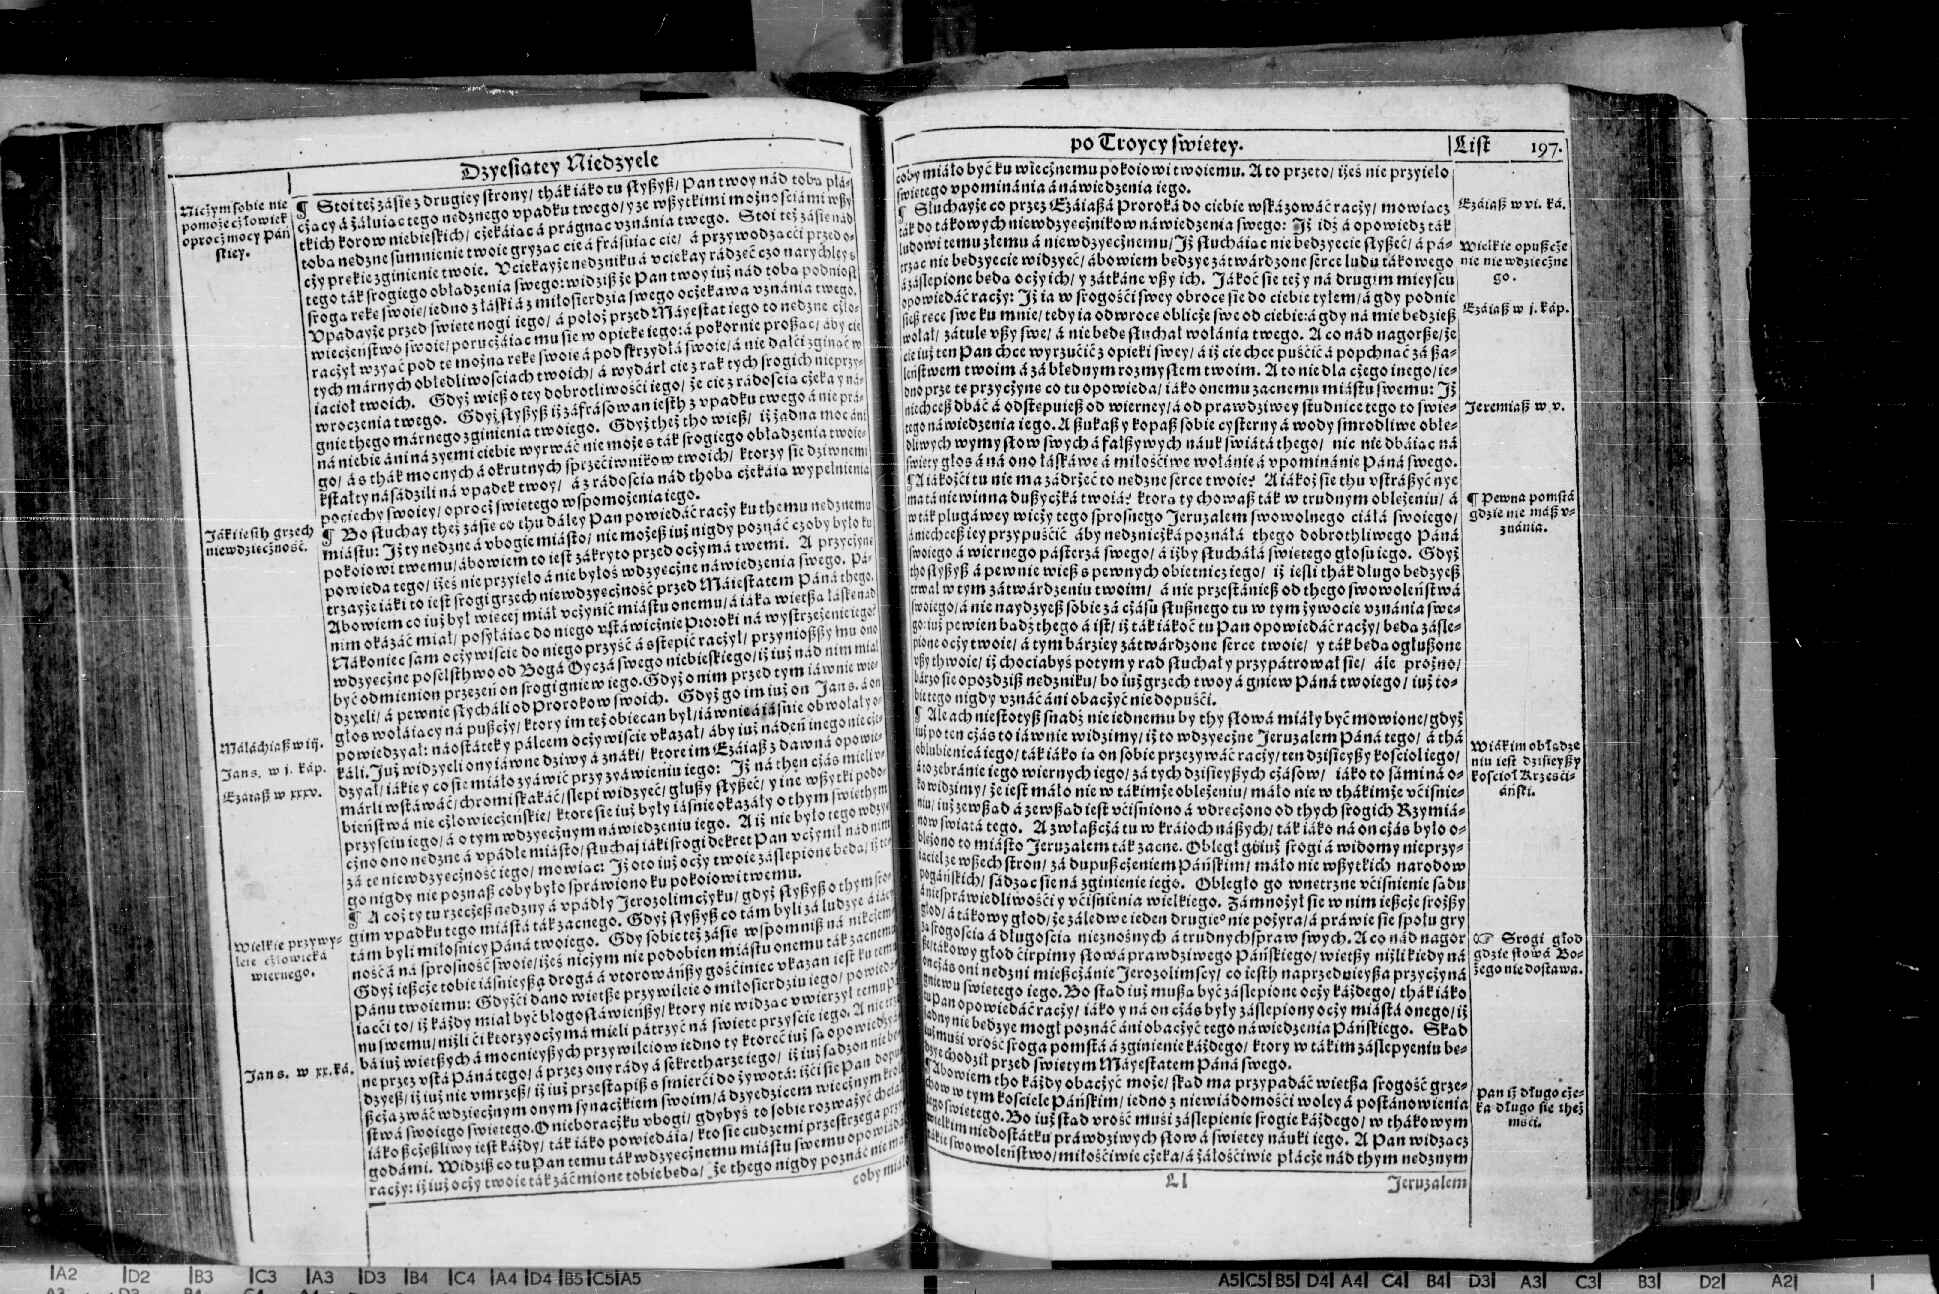 Dzyesiatey Niedzyele
Niczym sobie nie
pomoże człowiek
oprocz mocy Pań
skiey.
¶ Stoi też zásie z drugiey strony/ thák iáko tu słyszysz/ Pan twoy nád toba płá-
cżacy á żáłuiac tego nedznego vpadku twego/ y ze wszytkimi możnosciámi wszy
tkich korow niebieskich/ cżekáiac á prágnac vznánia twego. Stoi też zásie nád
toba nedzne sumnienie twoie gryzac cie á frásuiac cie/ á przywodzacci przed o-
cży prekie zginienie twoie. Vciekayże nedzniku á vciekay rádzeć czo narychley s
tego ták srogiego obładzenia swego: widzisz że Pan twoy iuż nád toba podniosł
sroga reke swoie/ iedno z łáski á z miłosierdzia swego ocżekawa vznánia twego.
Vpadayże przed swiete nogi iego/ á położ przed Máyestat iego to nedzne cżło-
wiecżeństwo swoie/ porucżáiac mu sie w opieke iego: á pokornie proszac/ áby cie
racżył wzyać pod te można reke swoie á pod skrzydłá swoie/ á nie dałći zginać w
tych márnych obłedliwosciach twoich/ á wydárł cie z rak tych srogich nieprzy-
iacioł twoich. Gdyż wiesz o tey dobrotliwości iego/ że cie z rádoscia cżeka y ná-
wroczenia twego. Gdyż słyszysz iż záfrásowan iesth z vpadku twego á nie prá-
gnie thego márnego zginienia twoiego. Gdyż theż tho wiesz/ iż żadna moc áni
ná niebie áni ná zyemi ciebie wyrwáć nie może s ták srogiego obładzenia twoie-
go/ á s thák mocnych á okrutnych sprzećiwnikow twoich/ ktorzy sie dziwnemi
kstałty násádzili ná vpadek twoy/ á z rádoscia nád thoba cżekáia wypełnienia
pociechy swoiey/ oprocż swietego wspomożenia iego.
Jáki iesth grzech
niewdzięcżność.
¶ Bo słuchay theż zásie co thu dáley Pan powiedáć racży ku themu nedznemu
miástu: Iż ty nedzne á vbogie miásto/ nie możesz iuż nigdy poznáć czoby było ku
pokoiowi twemu/ ábowiem to iest zákryto przed ocżymá twemi. A przycżyne
powieda tego/ iżeś nie przyieło á nie byłoś wdzyecżne náwiedzenia swego. Pá-
trzayże iáki to iest srogi grzech niewdzyecżność przed Máiestatem Páná thego.
Abowiem co iuż był więcej miał vcżynić miástu onemu/ á iáka wietsza łáske nád
nim okázáć miał/ posyłáiac do niego vstáwicżnie Proroki ná wystrzeżenie iego?
Nákoniec sam ocżywiscie do niego przyść á stepić racżył/ przyniosszy mu ono
wdzyecżne poselsthwo od Bogá Oyczá swego niebieskiego/ iż iuż nád nim miał
być odmienion przezeń on srogi gniew iego. Gdyż o nim przed tym iáwnie wie-
dzyeli/ á pewnie słycháli od Prorokow swoich. Gdyż go im iuż on Jans. á on
głos wołáiacy ná puszcży/ ktory im też obiecan był/ iáwnie á iáśnie obwołał y o-
powiedzyał: náostátek y pálcem ocżywiscie vkazał/ áby iuż nádeń inego nie cże-
káli. Już widzyeli ony iáwne dziwy á znáki/ ktore im Ezáiasz z dawná opowie-
dzyał/ iákie y co sie miáło zyáwić przy zyáwieniu iego: Iż ná then cżás mieli v-
márli wstáwáć/ chromi skákáć/ slepi widzyeć/ głuszy słyszeć/ y ine wszytki podo-
bieństwá nie cżłowiecżeńskie/ ktore sie iuż były iáśnie okazáły o thym swiethym
przysciu iego/ á o tym wdzyecżnym náwiedzeniu iego. A iż nie było tego wdzye
cżno ono nedzne á vpádłe miásto/ słuchaj iáki srogi dekret Pan vcżynił nád nim
zá te niewdzyecżność iego/ mowiac: Iż oto iuż ocży twoie záslepione beda/ iż te-
go nigdy nie poznasz coby było spráwiono ku pokoiowi twemu.
Maláchiasz w iij.
Jans. w j. káp.
Ezáiasz w xxxv.
Wielkie przywy-
leie cżłowieká
wiernego.
¶ A coż ty tu rzecżesz nedzny á vpádły Jerozolimcżyku/ gdyż słyszysz o thym sro-
gim vpadku tego miástá ták zacnego. Gdyż słyszysz co tám byli zá ludzye á iácy
tám byli miłosnicy Páná twoiego. Gdy sobie też zásie wspomnisz ná nikcżem
ność á ná sprosność swoie/ iżeś nicżym nie podobien miástu onemu ták zacnemu
Gdyż iescże tobie iáśnieysza drogá á vtorowánszy gościniec vkazan iest ku temu
Pánu twoiemu: Gdyżći dano wietsze przywileie o miłosierdziu iego/ powiedá
iacći to/ iż káżdy miał być błogosłáwieńszy/ ktory nie widzac vwierzył temu Pá
nu swemu/ niżli ći ktorzy ocżymá mieli pátrzyć ná swiete przyście iego. A nie trze
bá iuż wietszych á mocnieyszych przywileiow iedno ty ktoreć iuż sa opowiedzyá
ne przez vstá Páná tego/ á przez ony rády á sekretharze iego/ iż iuż sadzon nie be
dzyesz/ iż iuż nie vmrzesz/ iż iuż przestapisz s smierći do żywotá: iżći sie Pan dopu
szcża zwáć wdziecżnym onym synacżkiem swoim/ á dzyedzicem wiecżnym krole
stwá swoiego swietego. O nieboracżku vbogi/ gdybyś to sobie rozważyć chciał
iáko szcżesliwy iest káżdy/ ták iáko powiedáia/ kto sie cudzemi przestrzega przy
godámi. Widzisz co tu Pan temu ták wdzyecżnemu miástu swemu opowiádá
racży: iż iuż ocży twoie ták záćmione tobie beda/ że thego nigdy poznáć nie ma
Jans. w xx. ká.
coby miáło
po Troycy swietey.
List 197.
coby miáło być ku wiecżnemu pokoiowi twoiemu. A to przeto/ iżeś nie przyieło
swietego vpominánia á náwiedzenia iego.
¶ Słuchayże co przez Ezáiaszá Proroká do ciebie wskázowáć racży/ mowiacz
ták do tákowych niewdzyecżnikow náwiedzenia swego: Iż idź á opowiedz ták
ludowi temu złemu á niewdzyecżnemu/ Iż słucháiac nie bedzyecie słyszeć/ á pá-
trzac nie bedzyecie widzyeć/ ábowiem bedzye zátwárdzone serce ludu tákowego
á záslepione beda ocży ich/ y zátkáne vszy ich. Jákoć sie też y ná drugim mieyscu
opowiedáć racży: Iż ia w srogości swey obroce sie do ciebie tyłem/ á gdy podnie
siesz rece swe ku mnie/ tedy ia odwroce oblicże swe od ciebie: á gdy ná mie bedziesz
wołał/ zátule vszy swe/ á nie bede słuchał wołánia twego. A co nád nagorsze/ że
cie iuż ten Pan chce wyrzucić z opieki swey/ á iż cie chce puścić á popchnać zá sza-
leństwem twoim á zá błednym rozmysłem twoim. A to nie dla cżego inego/ ie-
dno prze te przycżyne co tu opowieda/ iáko onemu zacnemu miástu swemu: Iż
niechcesz dbáć á odstepuiesz od wierney/ á od prawdziwey studnice tego to swie-
tego náwiedzenia iego. A szukasz y kopasz sobie cysterny á wody smrodliwe obłe-
dliwych wymysłow swych á fałszywych náuk swiátá thego/ nic nie dbáiac ná
swiety głos á ná ono łáskáwe á miłościwe wołánie á vpominánie Páná swego.
¶ A iákożći tu nie ma zádrżeć to nedzne serce twoie? A iákoż sie thu vskrászyć nye
ma tá niewinna duszycżká twoiá? ktora ty chowasz ták w trudnym obleżeniu/ á
w ták plugáwey wieży tego sprosnego Jeruzalem swowolnego ciáłá swoiego/
á niechcesz iey przypuścić áby nedznicżká poznáłá thego dobrothliwego Páná
swoiego á wiernego pásterzá swego/ á iżby słucháłá swietego głosu iego. Gdyż
tho słyszysz á pewnie wiesz s pewnych obietnicz iego/ iż iesli thák długo bedzyesz
trwał w tym zátwárdzeniu twoim/ á nie przestániesz od thego swowoleństwá
swoiego/ á nie naydzyesz sobie zá cżásu słusznego tu w tym żywocie vznánia swe-
go: iuż pewien badź thego á ist/ iż ták iákoć tu Pan opowiedáć racży/ beda zásle-
pione ocży twoie/ á tym bárziey zátwárdzone serce twoie/ y ták beda ogłuszone
vszy thwoie/ iż chociabyś potym y rad słuchał y przypátrował sie/ ále prożno/
bárzo sie opozdzisz nedzniku/ bo iuż grzech twoy á gniew Páná twoiego/ iuż to-
bie tego nigdy vznáć áni obacżyć nie dopuści.
¶ Ale ách niestotysz snadź nie iednemu by thy słowá miáły być mowione/ gdyż
iuż po ten cżás to iáwnie widzimy/ iż to wdzyecżne Jeruzalem Páná tego/ á thá
oblubienicá iego/ ták iáko ia on sobie przezywáć racży/ ten dzisieyszy kościoł iego/
á to zebránie iego wiernych iego/ zá tych dzisieyszych cżásow/ iáko to sámi ná o-
ko widzimy/ że iest máło nie w tákimże obleżeniu/ máło nie w thákimże vciśnie-
niu/ iuż zewszad á zewszad iest vciśniono á vdrecżono od thych srogich Rzymiá-
now swiátá tego. A zwłaszcżá tu w kráioch nászych/ ták iáko ná on cżás było o-
bleżono to miásto Jeruzalem ták zacne. Obległ go iuż srogi á widomy nieprzy-
iaciel ze wszech stron/ zá dupuszcżeniem Páńskim/ máło nie wszytkich narodow
pogáńskich/ sádzac sie ná zginienie iego. Obległo go wnetrzne vciśnienie sadu
á niespráwiedliwości y vciśnienia wielkiego. Zámnożył sie w nim iescże sroższy
głod/ á tákowy głod/ że záledwe ieden drugiego nie pożyra/ á práwie sie społu gry
za srogoscia á długoscia nieznośnych á trudnych spraw swych. A co nád nagor
sze/ tákowy głod ćirpimy słowá prawdziwego Páńskiego/ wietszy niżli kiedy ná
on cżás oni nedzni mieszcżánie Jerozolimscy/ co iesth naprzednieysza przycżyná
gniewu swietego iego. Bo stad iuż musza być záslepione ocży káżdego/ thák iáko
tu Pan opowiedáć racży/ iáko y ná on cżás były záslepiony ocży miástá onego/ iż
żadny nie bedzye mogł poznáć áni obacżyć tego náwiedzenia Páńskiego. Skad
iuż musi vrość sroga pomstá á zginienie káżdego/ ktory w tákim záslepyeniu be-
dzye chodził przed swietym Máyestatem Páná swego.
¶ Abowiem tho káżdy obacżyć może/ skad ma przypadáć wietsza srogość grze-
chow w tym kościele Páńskim/ iedno z niewiádomości woley á postánowienia
iego swietego. Bo iuż stad vrość musi záslepienie srogie káżdego/ w thákowym
wielkim niedostátku prawdziwych słow á swietey náuki iego. A Pan widzacz
tákie swowoleństwo/ miłościwie cżeka/ á żáłościwie płácże nád thym nedznym
Ezáiasz w vi. ká.
Wielkie opuszcże
nie niewdziecżne
go.
Ezáiasz w j. káp.
Jeremiasz w v.
¶ Pewna pomstá
gdzie nie masz v-
znánia.
W iákim obłądze
niu iest dzisieyszy
kościoł Krześci-
áński.
☞ Srogi głod
gdzie słowá Bo-
żego nie dostawa.
Pan iż długo cże-
ka długo sie theż
mści.
Ll
Jeruzalem
|A2 |D2 |B3 |C3 |A3 |D3 |B4 |C4 |A4 |D4 |B5 |C5|A5
A5|C5|B5|D4|A4| C4| B4| D3| A3| C3| B3| D2| A2|